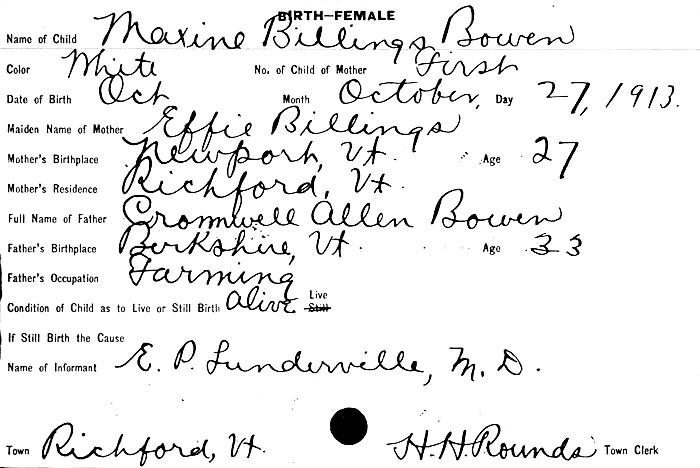 BIRTH—FEMALE
Name of Child Maxine Billings Bowen
Color White No. of Child of Mother First
Date of Birth Oct Month October, Day 27, 1913.
Maiden Name of Mother Effie Billings
Mother's Birthplace Newport, Vt. Age 27
Mother's Residence Richford, Vt.
Full Name of Father Cromwell Allen Bowen
Father's Birthplace Berkshire, Vt. Age 33
Father's Occupation Farming
Condition of Child as to Live or Still Birth Alive Live
Still
If Still Birth the Cause
Name of Informant E. P. Lunderville, M. D.
Town Richford, Vt. H. H. Rounds Town Clerk